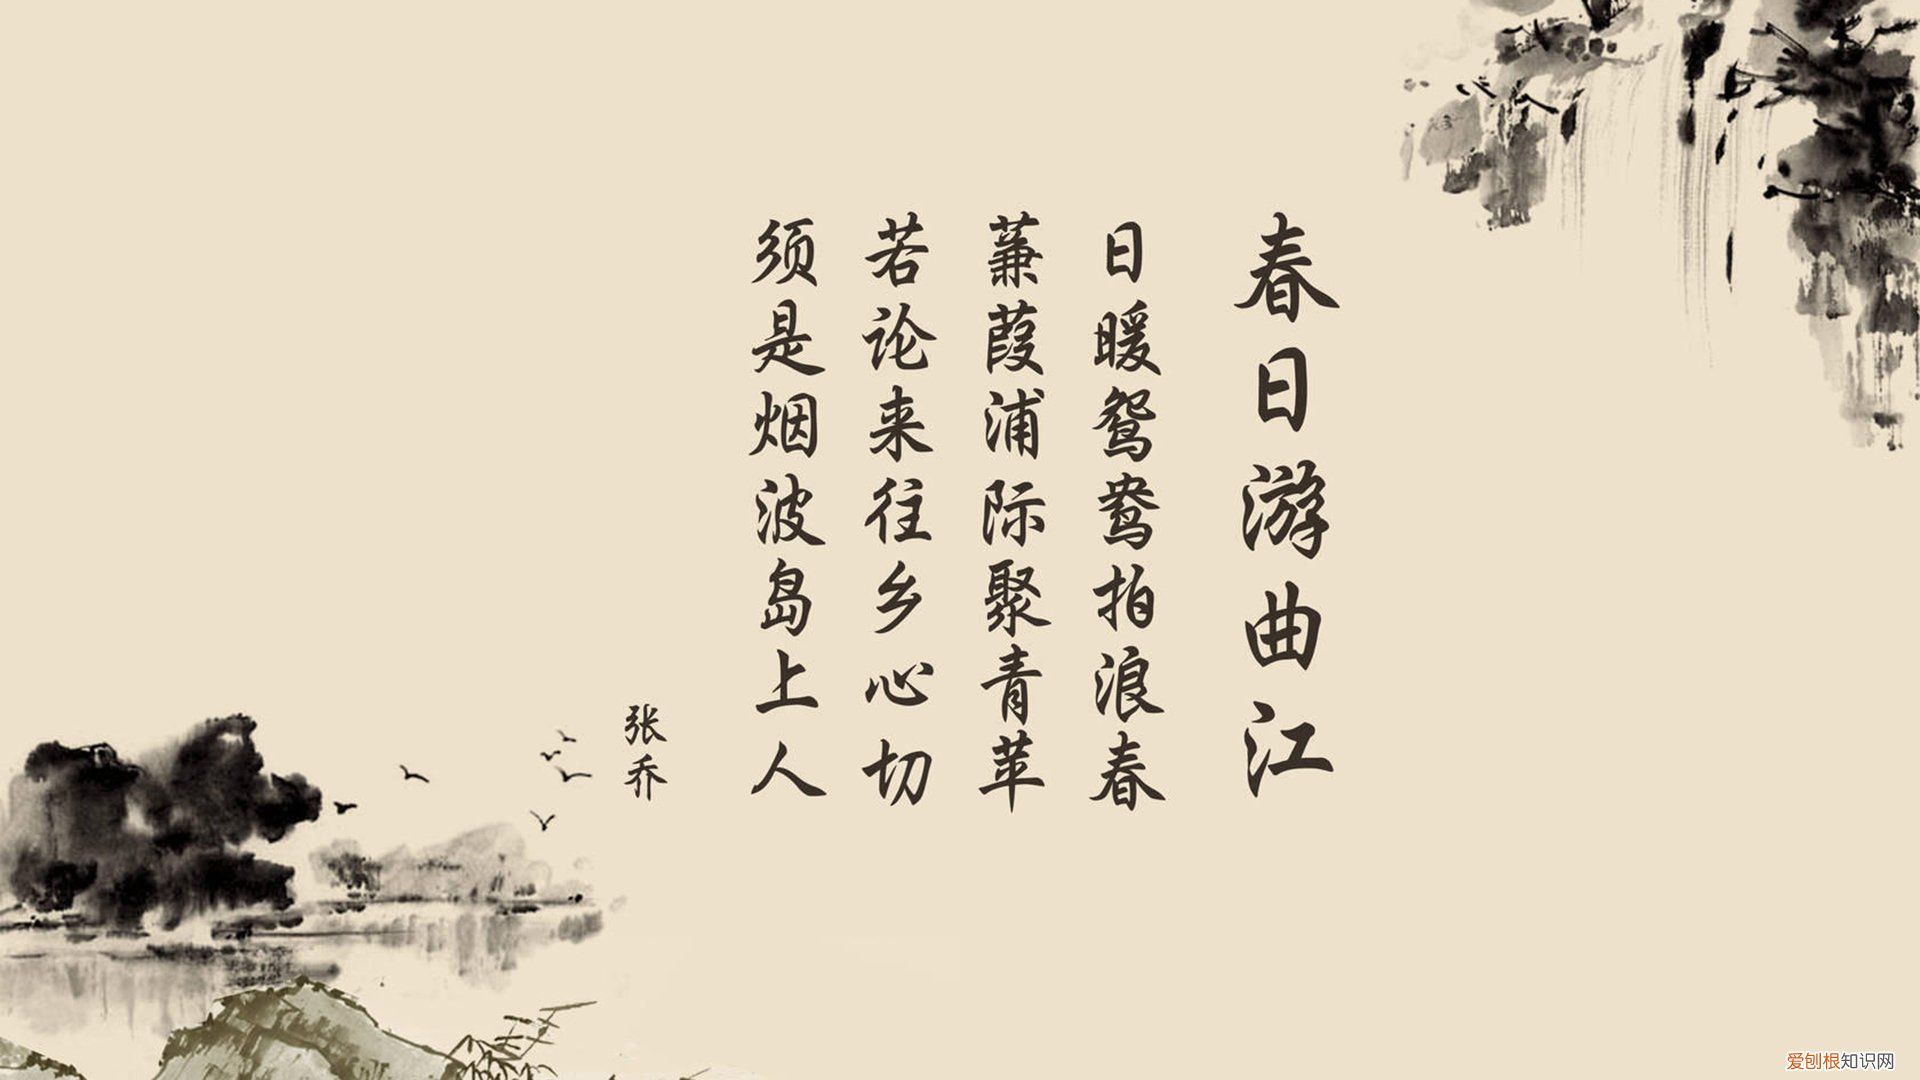 春日游曲江
日暖鸳鸯拍浪春
蒹葭浦际聚青苹
若论来往乡心切
须是烟波岛上人
张乔
爱刨根知识网